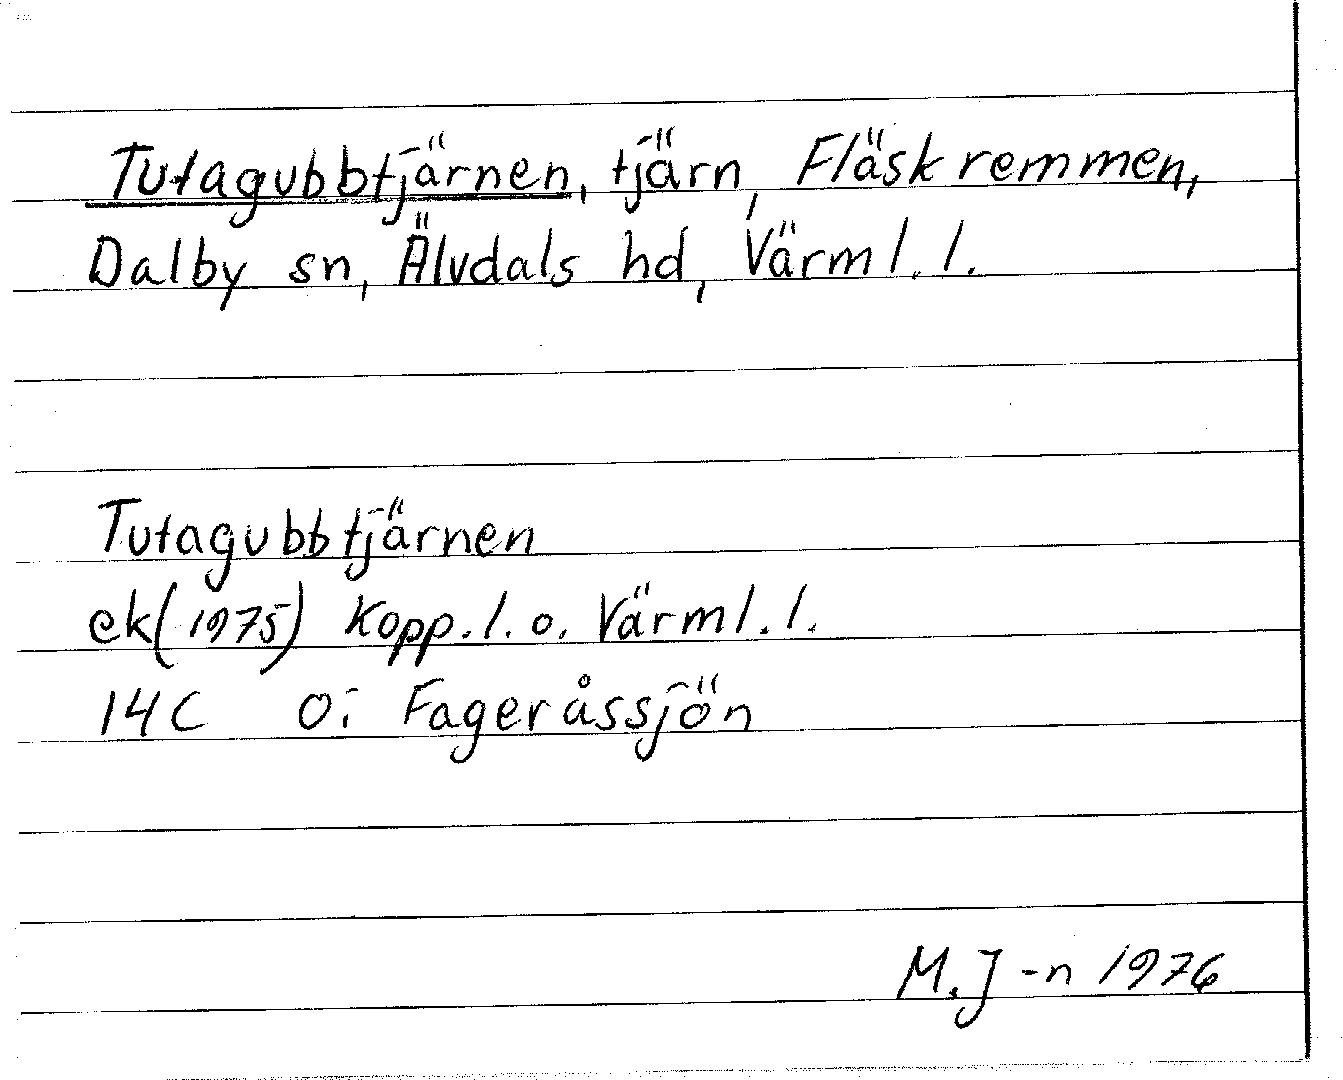 Tutagubbtjärnen, tjärn, Fläskremmen,
Dalby sn, Älvdals hd, Värml. l.
Tutagubbtjärnen
ek(1975) Kopp. l. o. Värml. l.
14C Oi Fageråssjön
M.J-n 1976